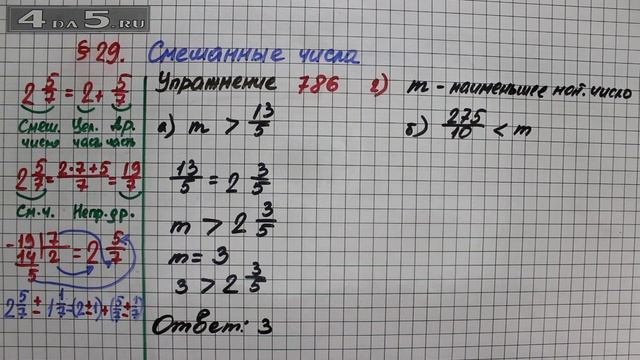 4DA5.RU
§ 29. Смешанные числа
2 5/7 = 2 + 5/7
Смеш. число Цел. часть Др. часть
2 5/7 = (2·7+5)/7 = 19/7
См.ч. Непр.др.
- 19 | 7
14 | 2 = 2 5/7
5
2 5/7 ± 1 1/7 = (2±1) + (5/7 ± 1/7)
Упражнение 786 г) m - наименьшее нат. число
а) m > 13/5
13/5 = 2 3/5
m > 2 3/5
m = 3
3 > 2 3/5
Ответ: 3
б) 275/10 < m